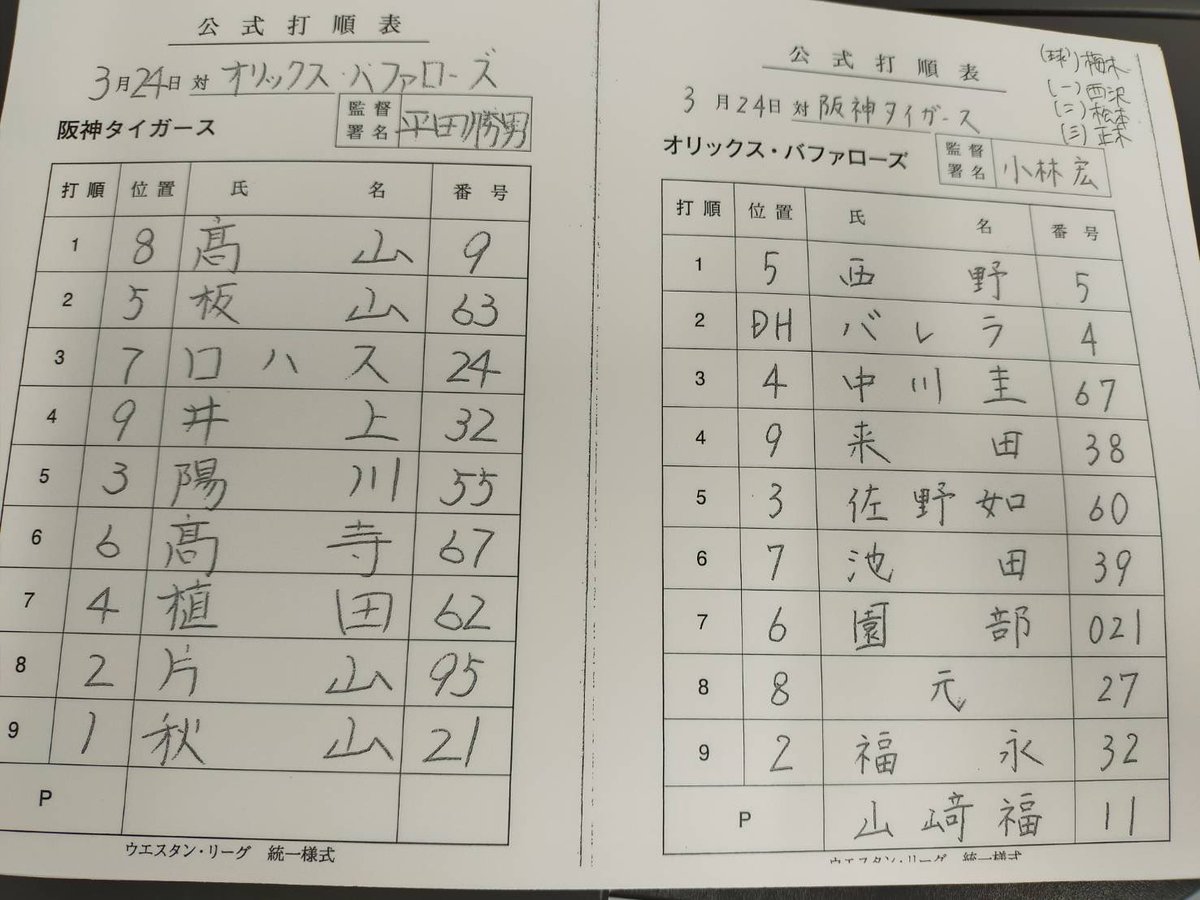 公式打順表
3月24日 対 オリックス・バファローズ
阪神タイガース 監督署名 平田勝男
打順 位置 氏名 番号
1 8 髙山 9
2 5 板山 63
3 7 ロハス 24
4 9 井上 32
5 3 陽川 55
6 6 髙寺 67
7 4 植田 62
8 2 片山 95
9 1 秋山 21
P
ウエスタン・リーグ 統一様式
公式打順表
(球)梅木
(一)西沢
(二)松本
(三)正木
3月24日 対 阪神タイガース
オリックス・バファローズ 監督署名 小林宏
打順 位置 氏名 番号
1 5 西野 5
2 DH バレラ 4
3 4 中川圭 67
4 9 来田 38
5 3 佐野如 60
6 7 池田 39
7 6 園部 021
8 8 元 27
9 2 福永 32
P 山﨑福 11
ウエスタン・リーグ 統一様式